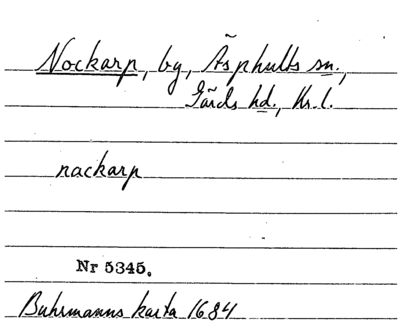 Nockarp, by, Äsphults sn.,
Gärds hd., Kr. l.
nackarp
Nr 5345.
Buhrmanns karta 1684